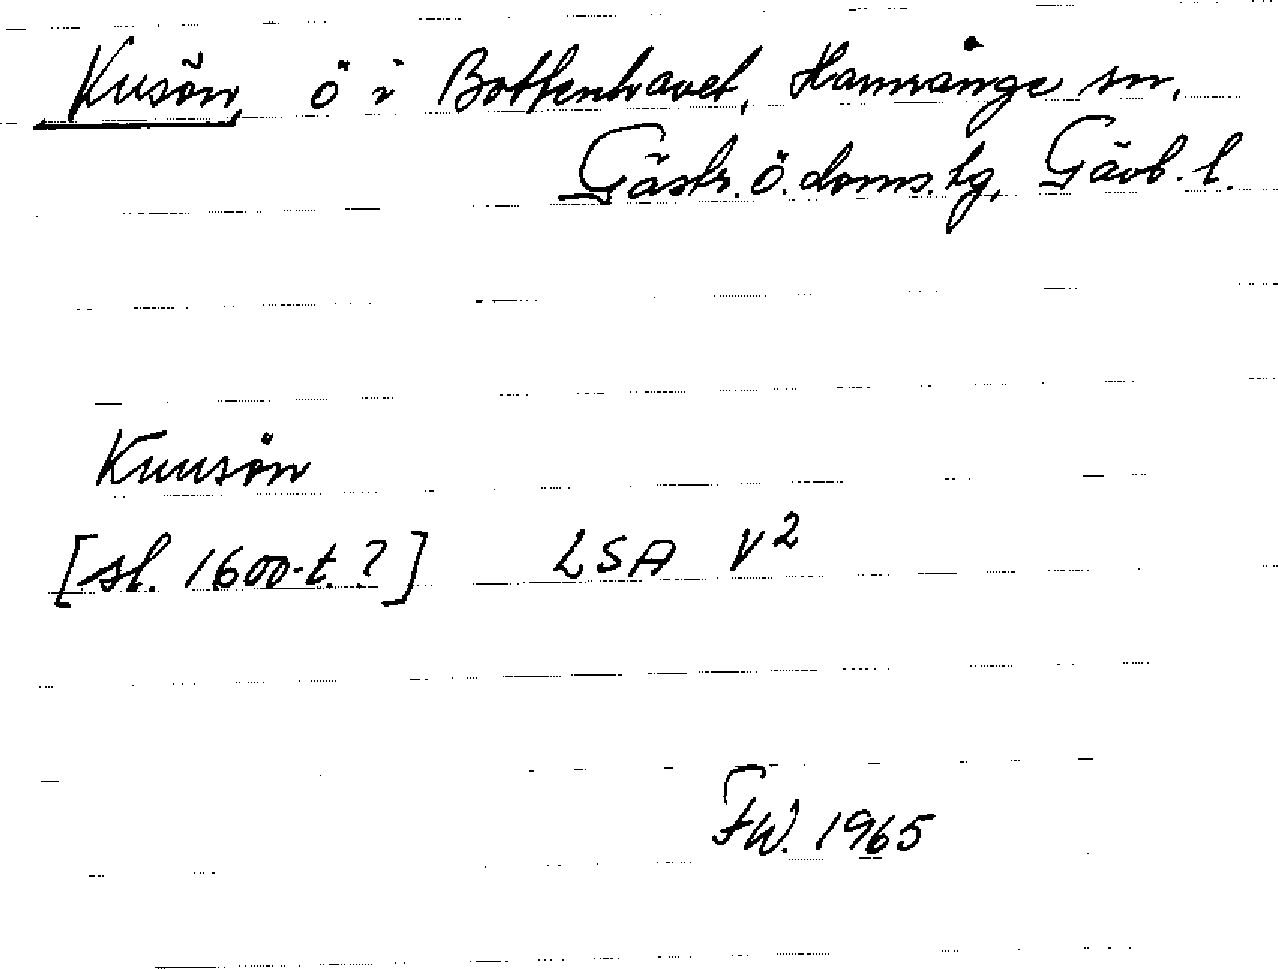 Kusön, ö i Bottenhavet, Hamrånge sn,
Gästr. ö. doms. tg, Gävb. l.
Kuusön
[sl. 1600-t. ?] LSA V²
FW. 1965